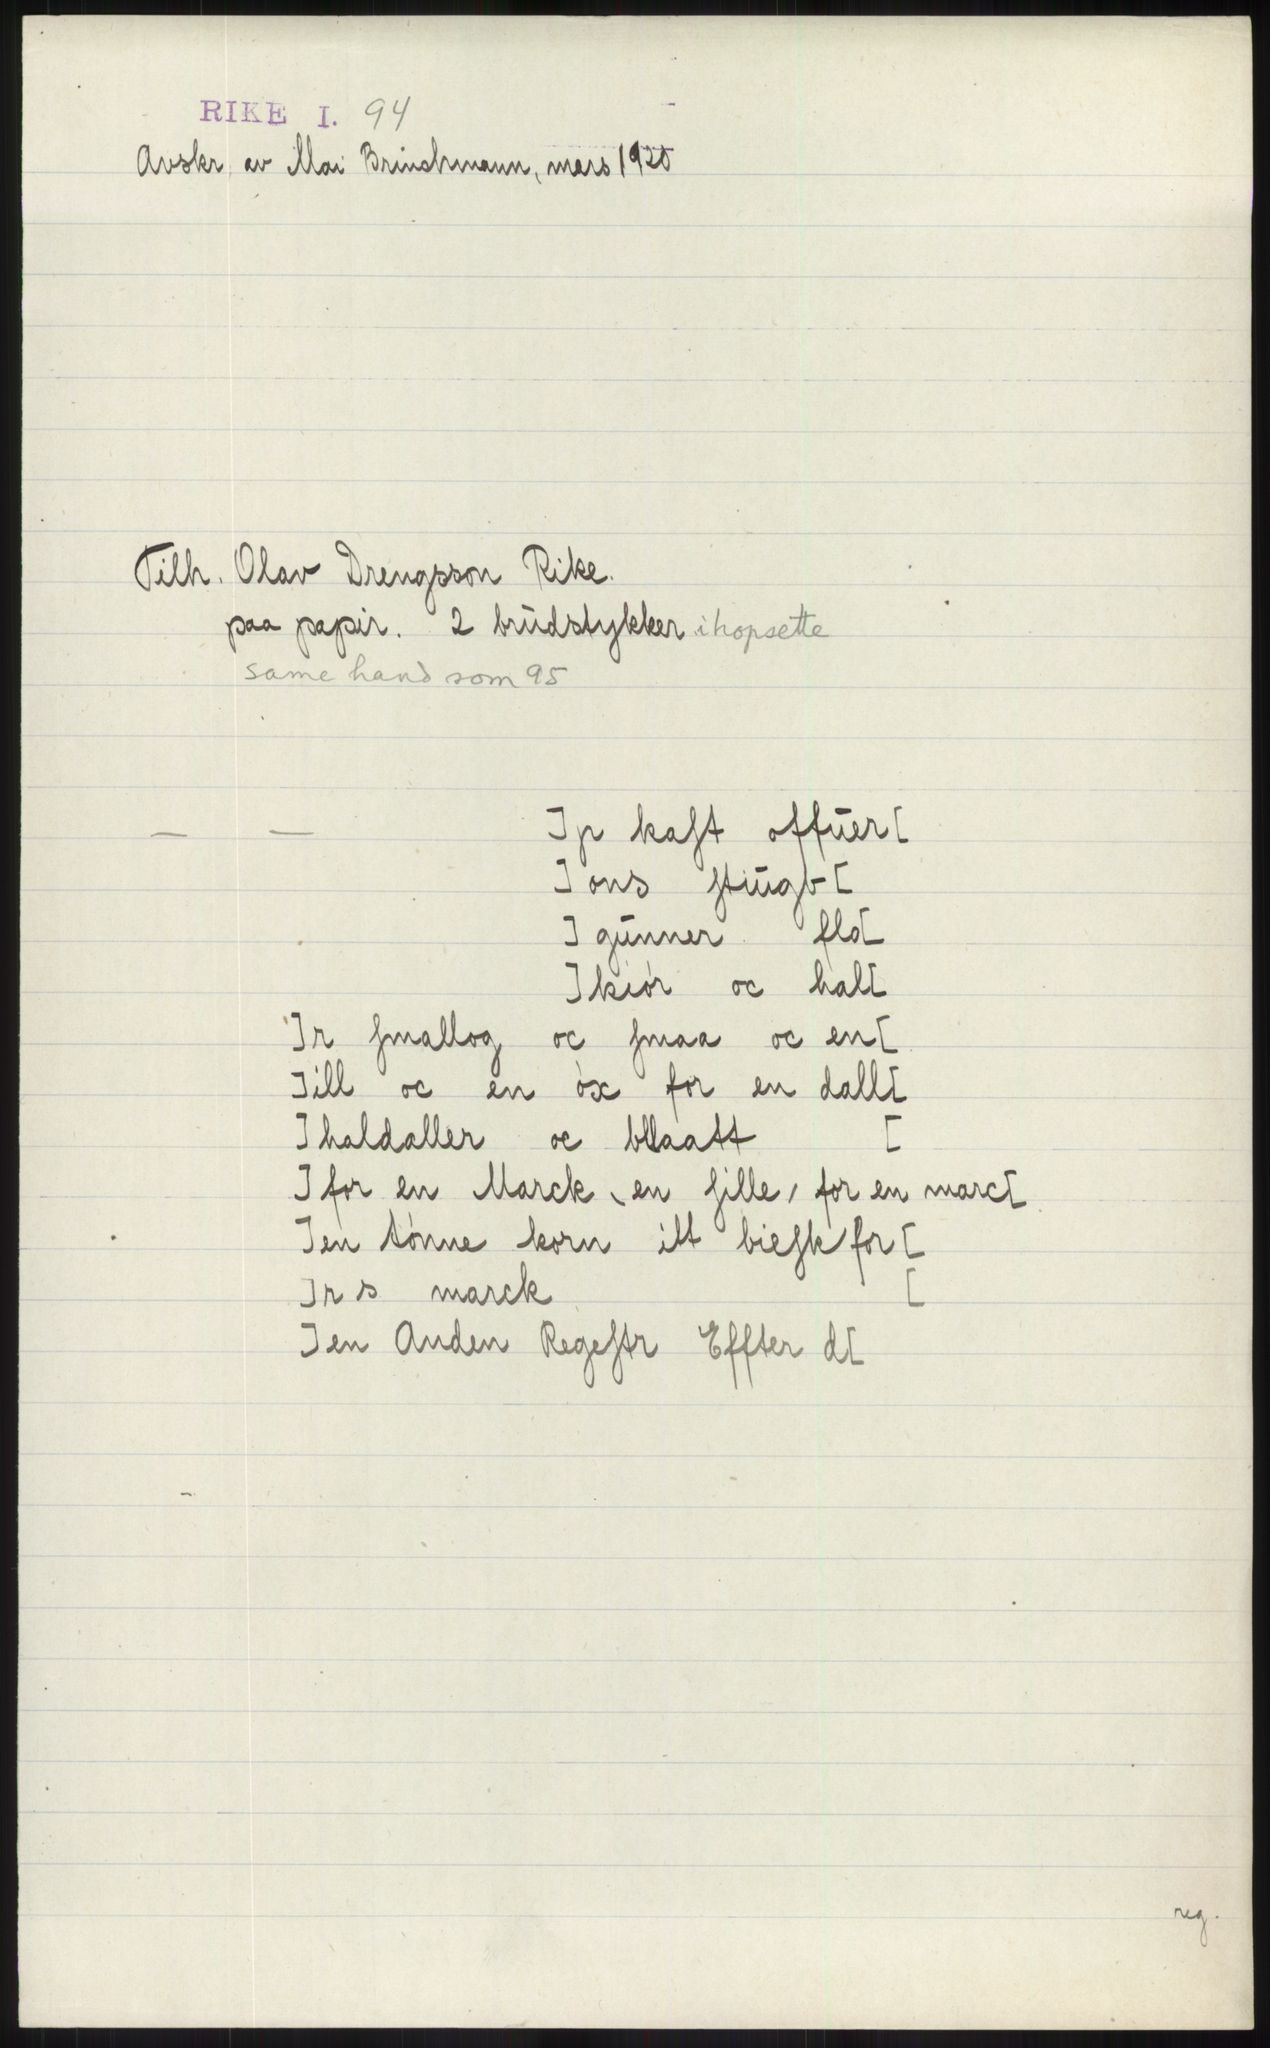 RIKE I. 94
Avskr. av Mai Brinchmann, mars 1920
Tilh. Olav Drengsson Rike.
paa papir. 2 brudstykker ihopsette
same hand som 95
— — ]p kaſt offuer[
]ons ſtiugb[
]gunner flo[
]kiör oc hal[
]r ſmallog oc ſmaa oc en[
]ill oc en öx for en dall[
]haldaller oc bllaatt [
]for en Marck, en ſille, for en marc[
]en tönne korn itt bieſk for[
]r s marck [
]en Anden Regeſtr Effter d[
reg.